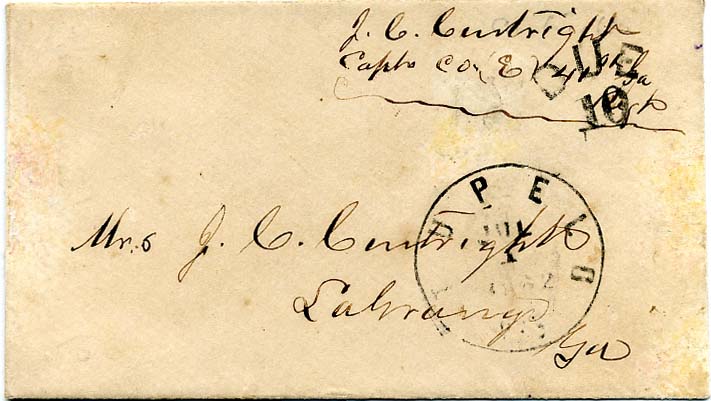 J. C. Curtright
Capt. Co. (E) 41st Ga
Regt
DUE
10
TUPELO
JUL
1
Mrs J. C. Curtright
LaGrange
Ga